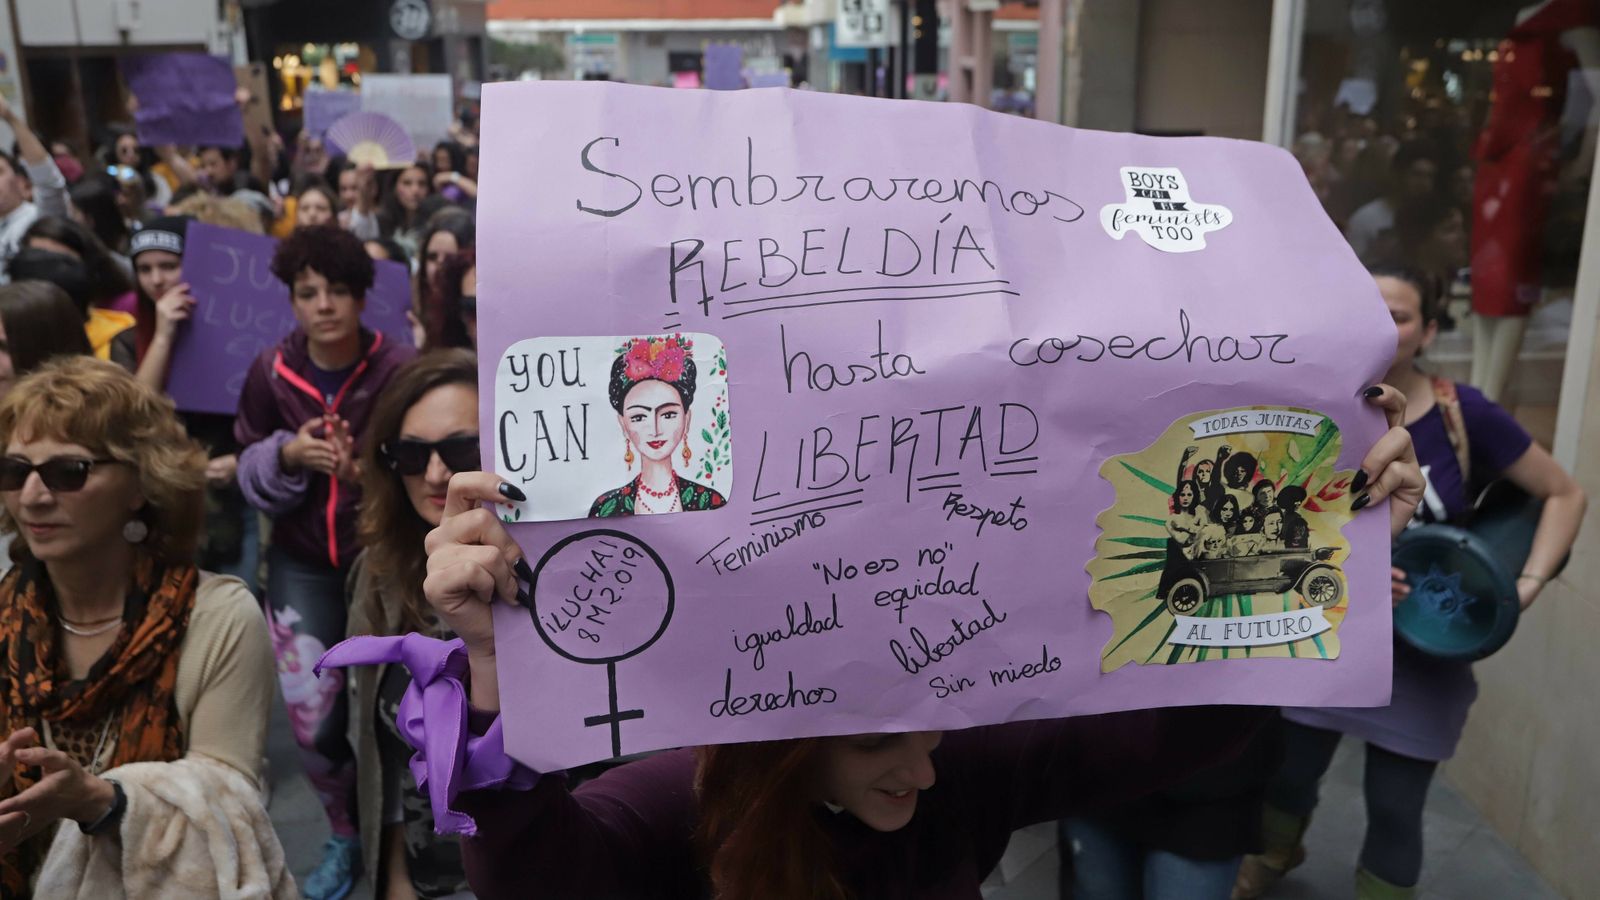 Sembraremos
REBELDÍA
hasta cosechar
LIBERTAD
BOYS
CAN
BE
feminists
TOO
YOU
CAN
Feminismo
Respeto
"No es no"
igualdad
equidad
libertad
derechos
sin miedo
¡LUCHA!
8M2.019
TODAS JUNTAS
AL FUTURO